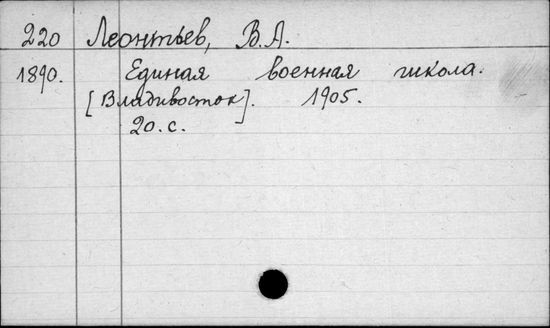 220 Леонтьев, В.А.
1890. Единая военная школа.
[Владивосток]. 1905.
20.с.